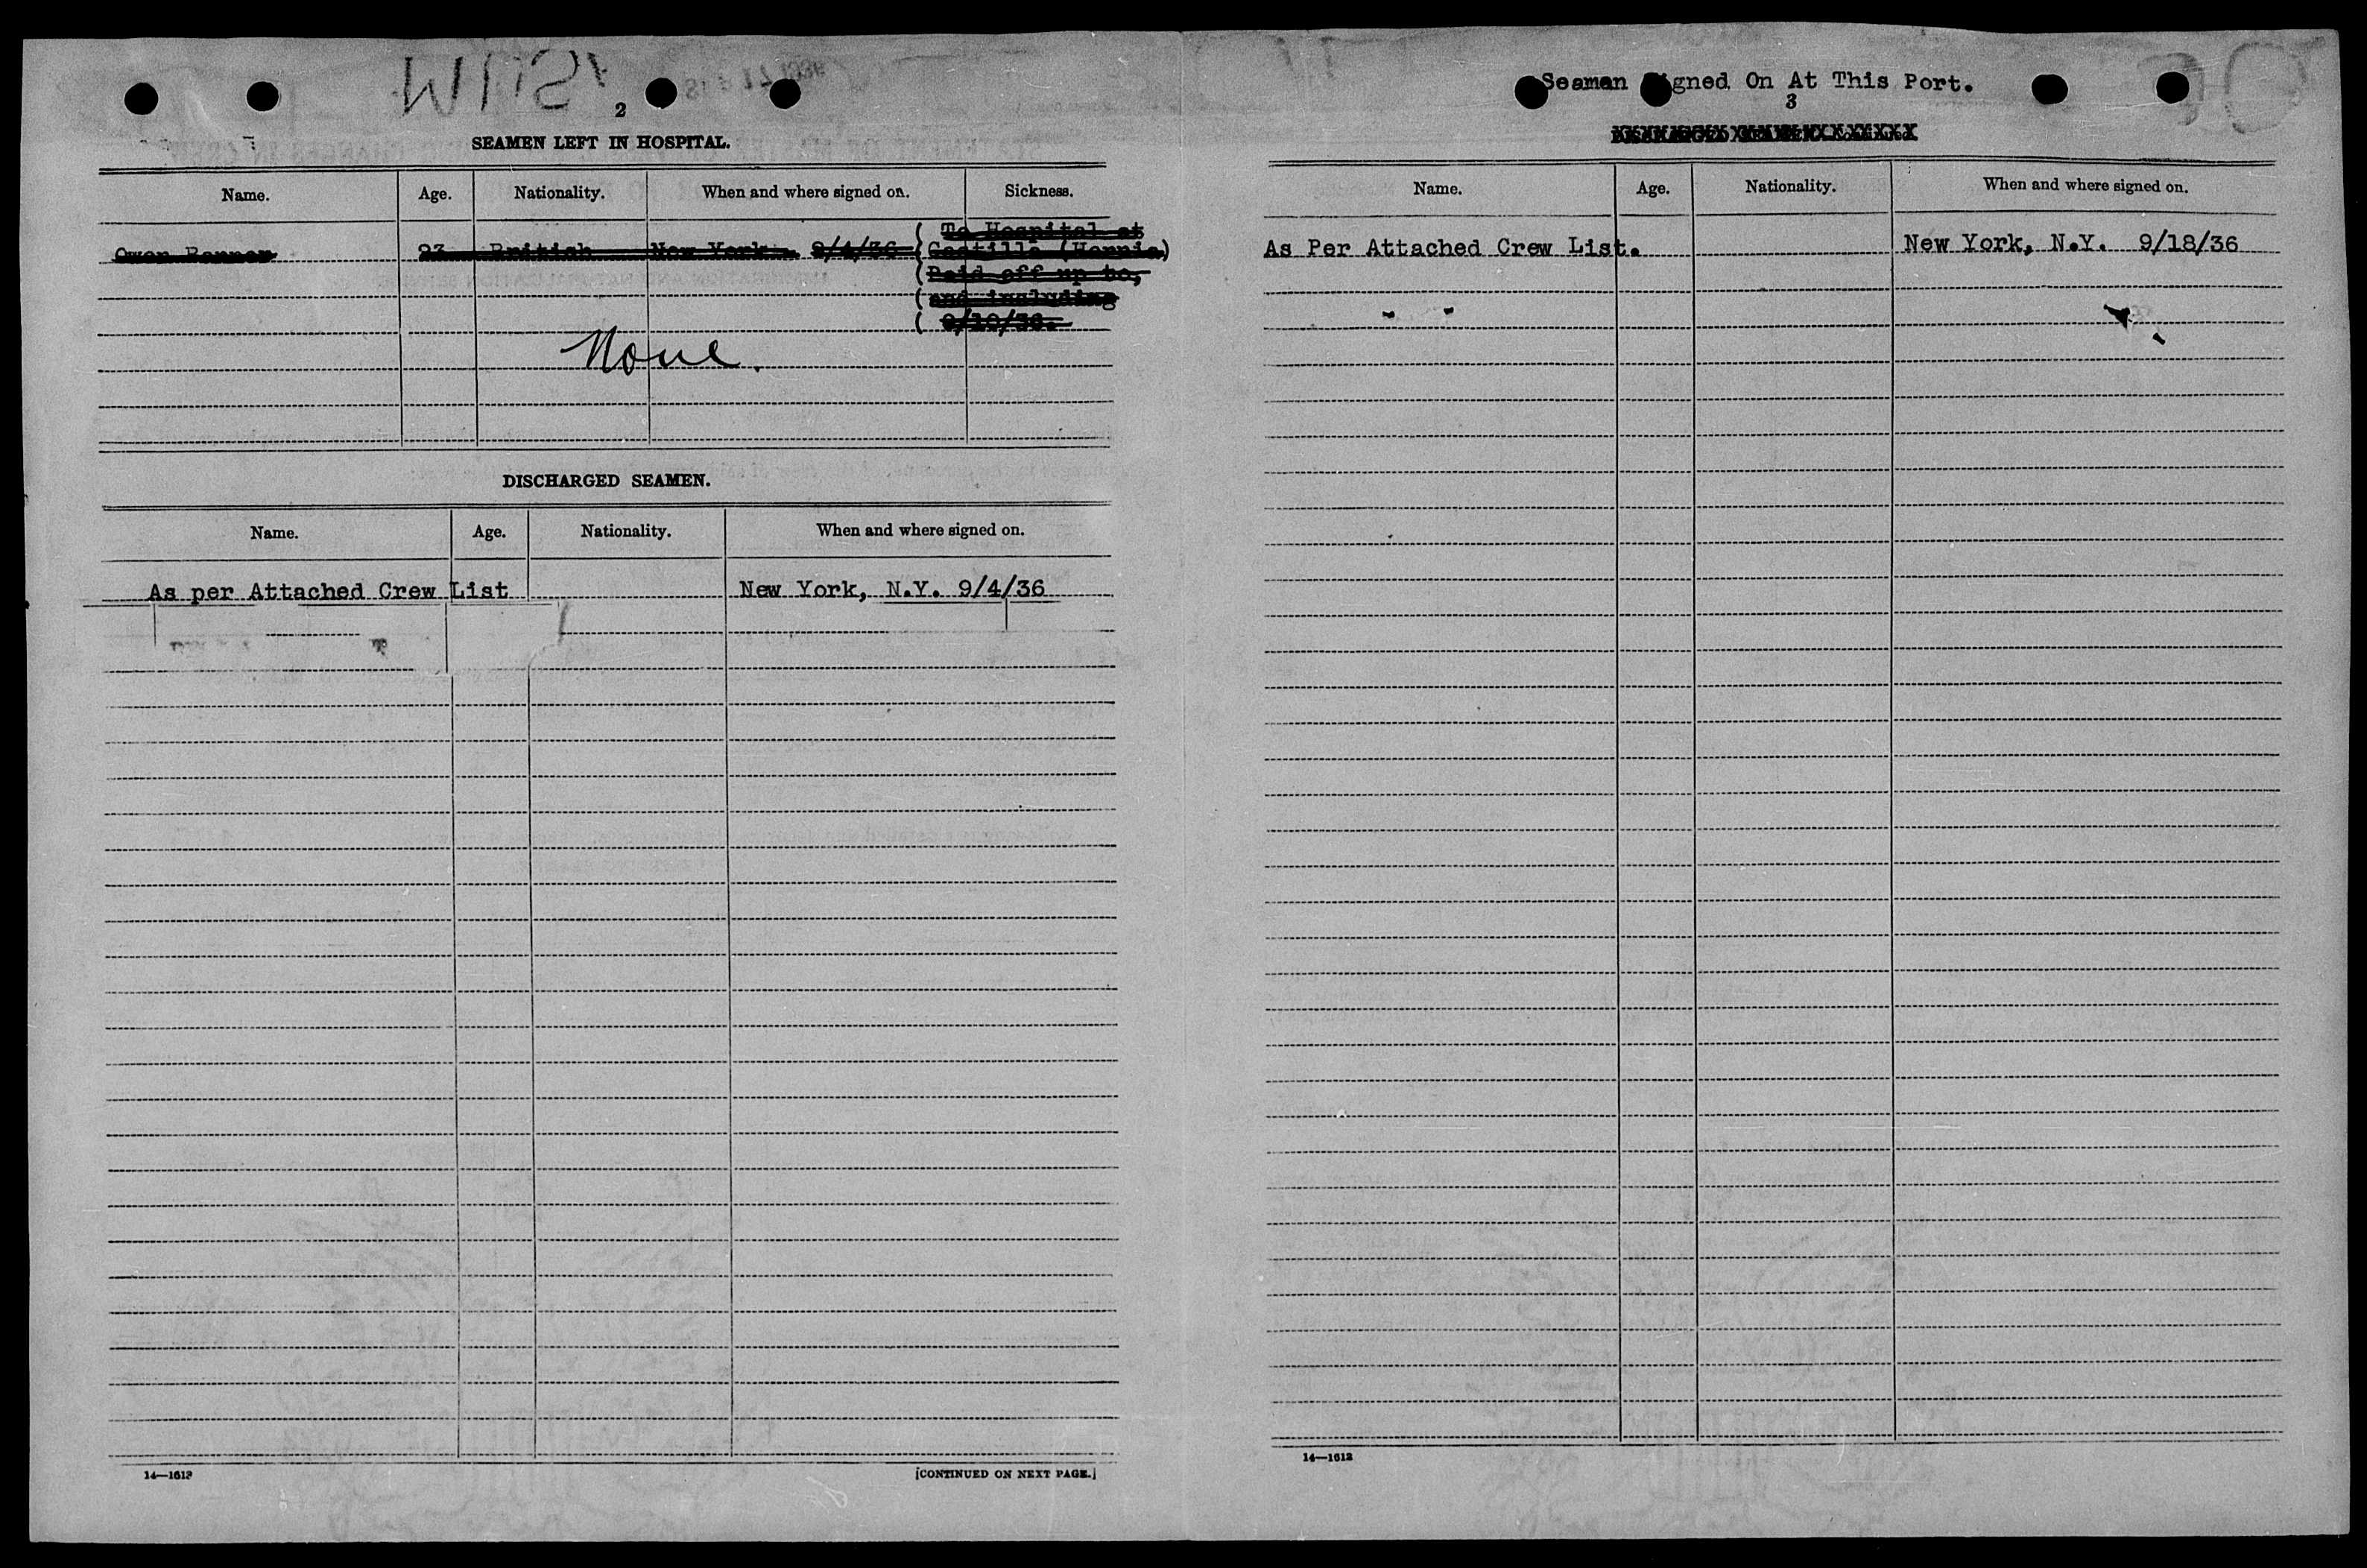 2
SEAMEN LEFT IN HOSPITAL.
Name. Age. Nationality. When and where signed on. Sickness.
Owen 23 British New York 9/4/36 ( To Hospital at
Castilla (Hernia)
( Paid off up to,
( and including
( 9/10/36.
None.
DISCHARGED SEAMEN.
Name. Age. Nationality. When and where signed on.
As per Attached Crew List New York, N.Y. 9/4/36
14—1612
[CONTINUED ON NEXT PAGE.]
Seaman igned On At This Port.
3
Name. Age. Nationality. When and where signed on.
As Per Attached Crew List. New York, N.Y. 9/18/36
14—1612